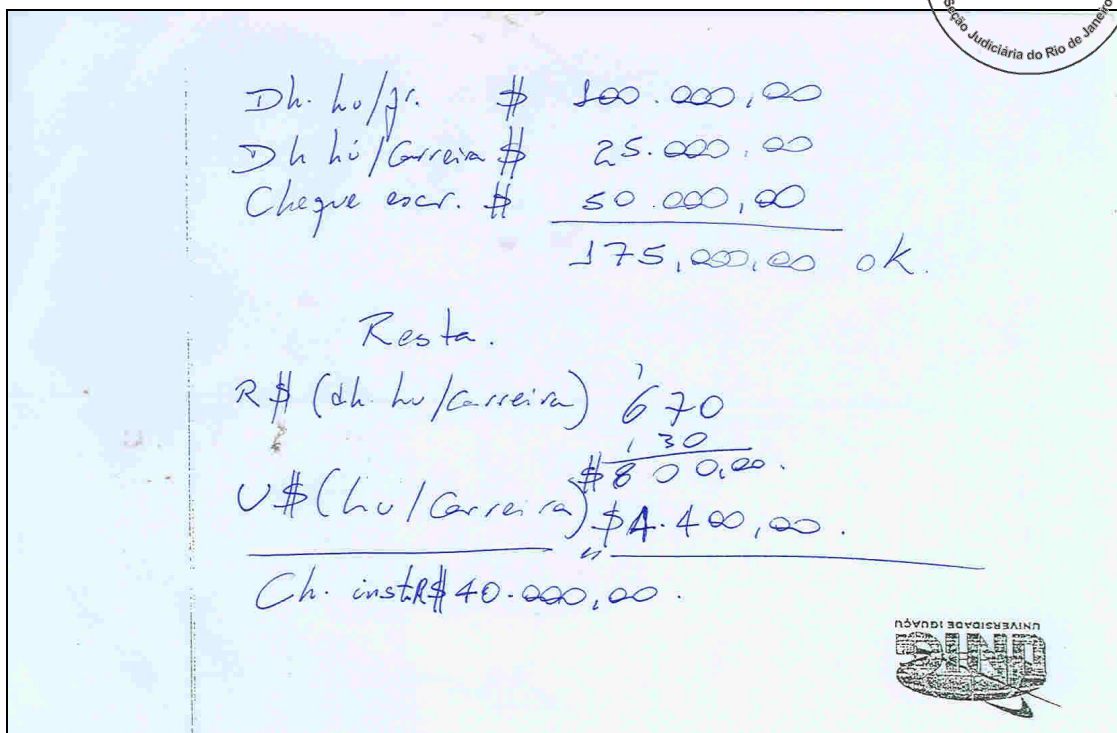 Seção Judiciária do Rio de Janeiro
Dh. hu/jr. $ 100.000,00
Dh hu/Carreira $ 25.000,00
Cheque escr. $ 50.000,00
175,000,00 ok.
Resta.
R$ (dh. hu/Carreira) 670
130
$ 800,00.
U$ (hu/Carreira) $4.400,00.
Ch. inst. R$ 40.000,00.
UNIG
UNIVERSIDADE IGUAÇU